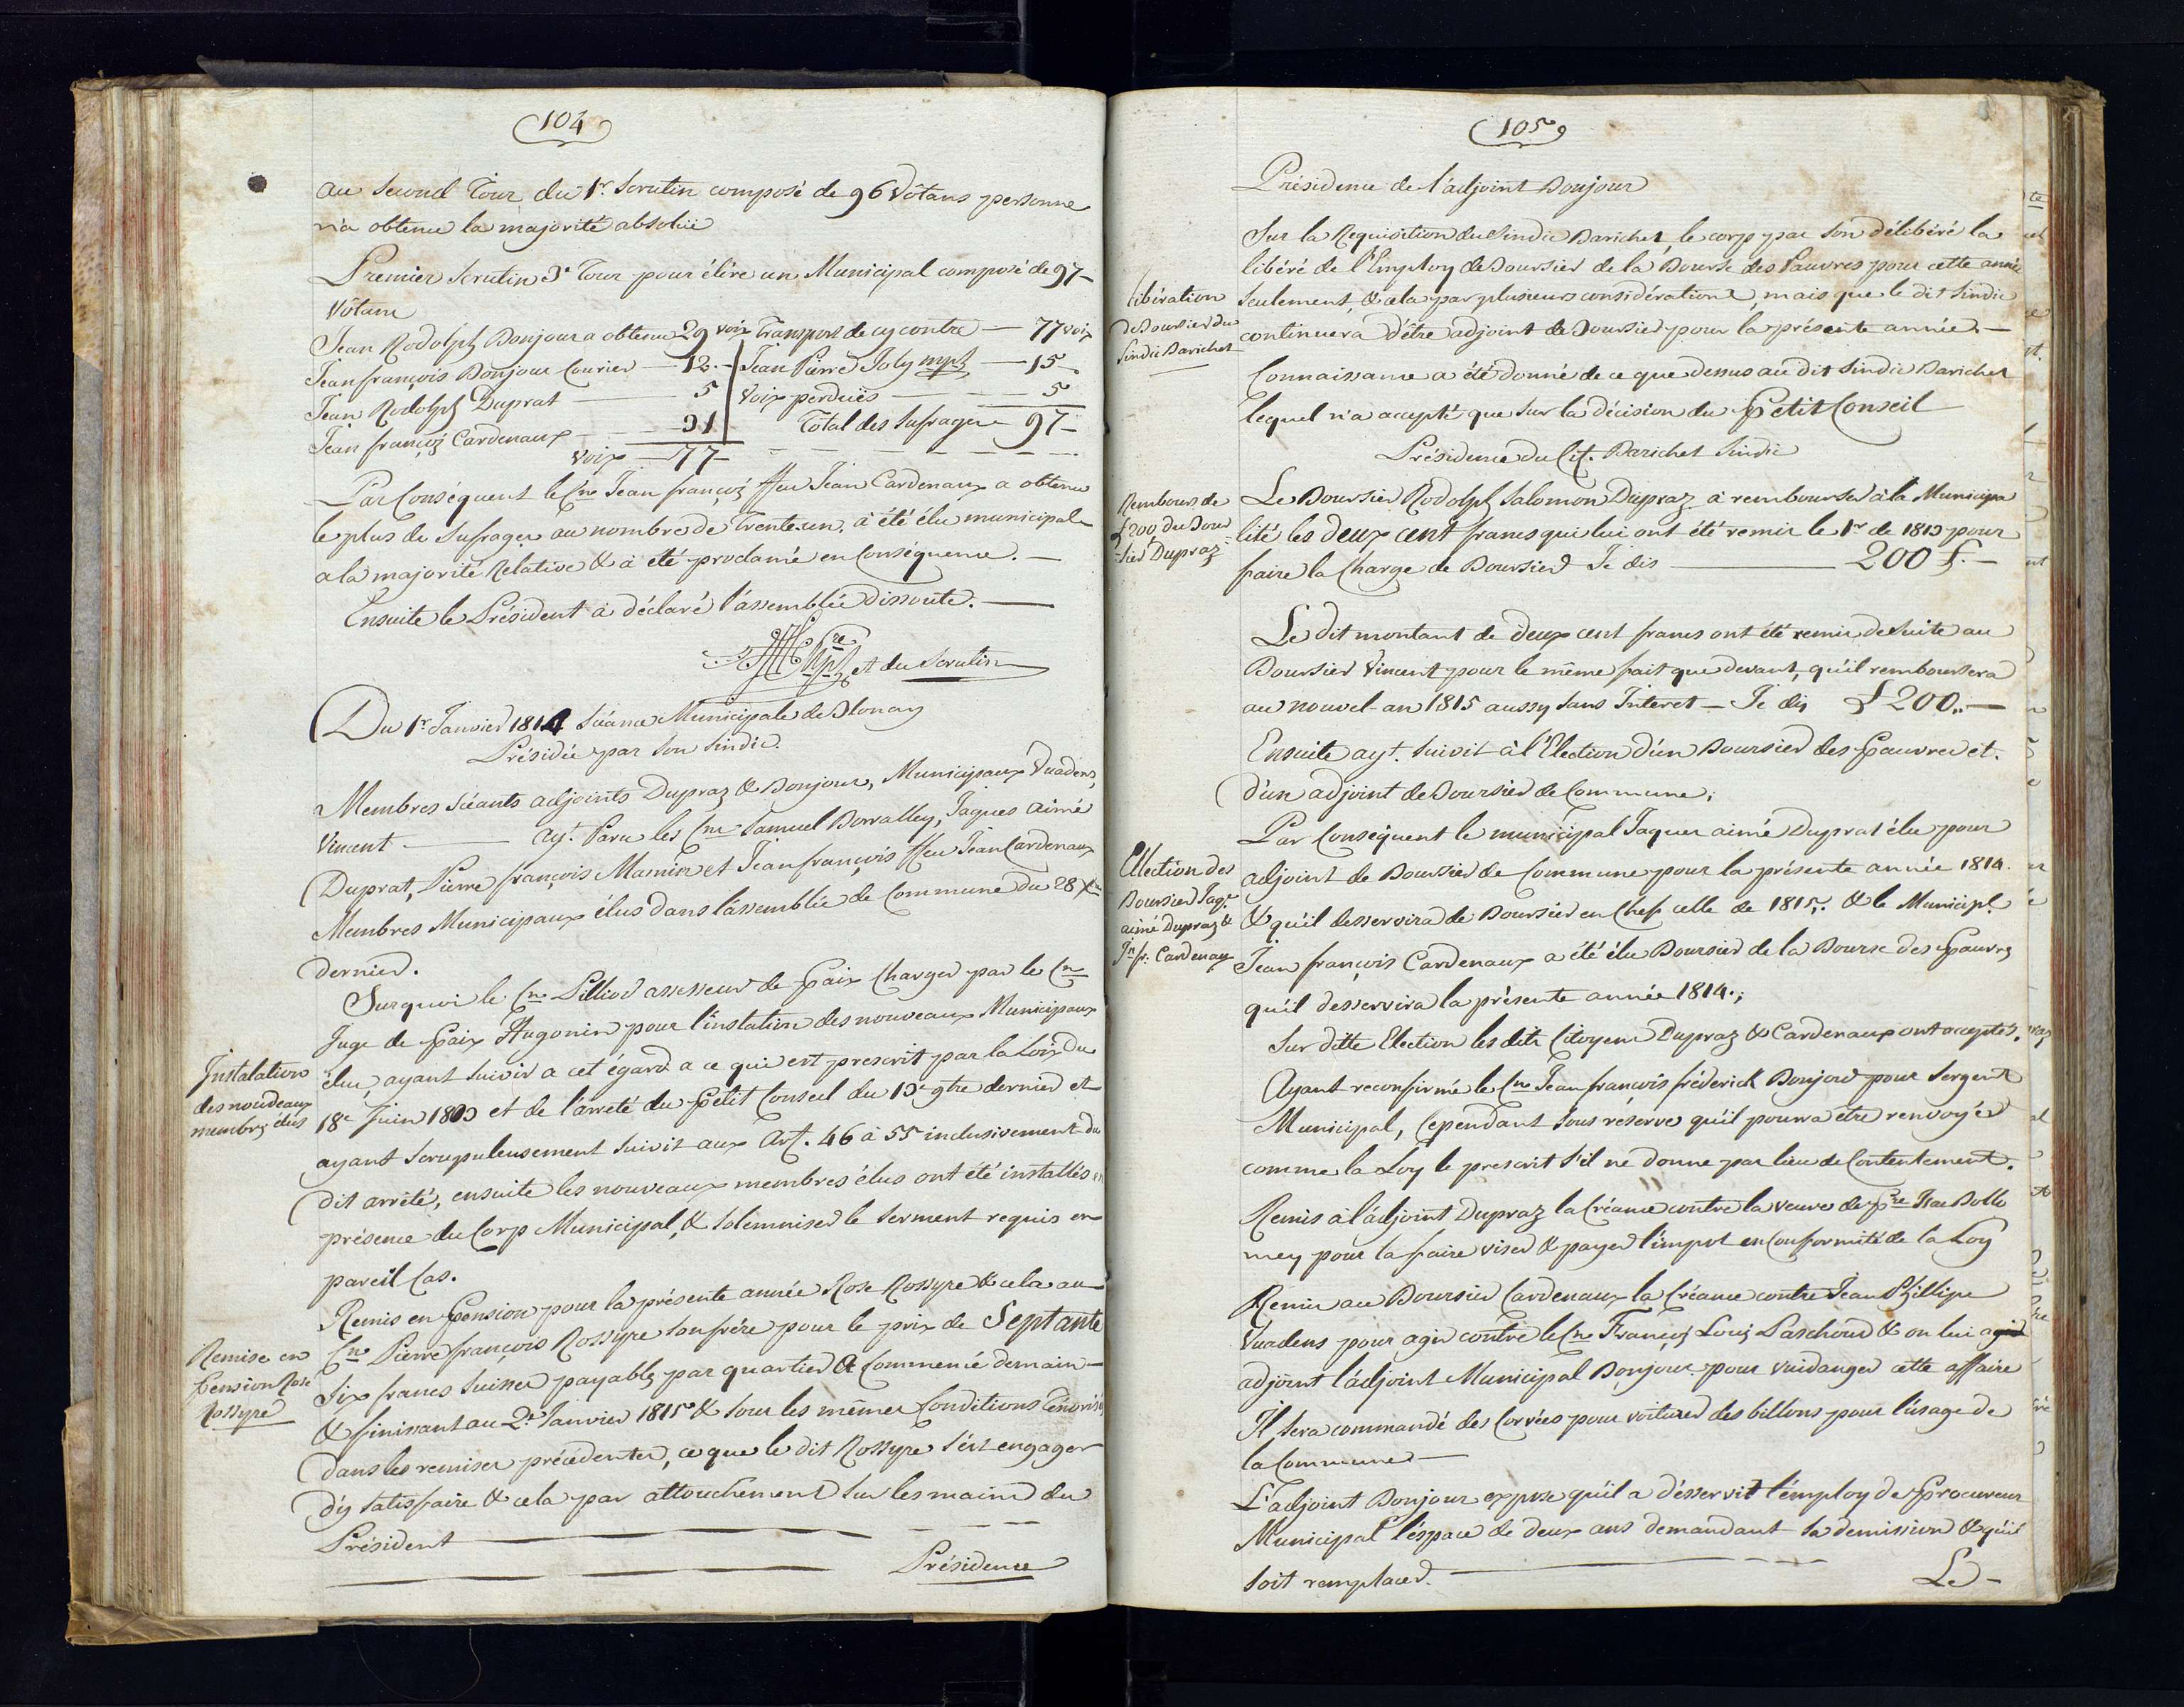 104
au second Tour du 1r. Scrutin composé de 96 Vôtans personne
n'a obtenu la majorité absolüe
Premier Scrutin 3e Tour pour élire un Municipal composé de 97-
Vôtans
Jean Rodolph Bonjour a obtenu 29 voix Transport de cy contre — 77 voix
Jean françois Bonjour Courier — 12. - Jean Pierre Joly mpl — 15 -
Jean Rodolph Duprat — 5 Voix perdües — 5
Jean françois Cardenaux — 31 Total des Sufrages 97-
voix — 77-
Par Conséquent le Cne Jean françois ffeu Jean Cardenaux a obtenu
le plus de Sufrages au nombre de Trente-un, à été élu municipal
a la majorité Relative & à été proclamé en Conséquence. —
Ensuite le Président à déclaré l'assemblée dissoute. —
et du Scrutin
Du 1r. Janvier 1814 Séance Municipale de Blonay
Présidée par son Sindic.
Membres Séants adjoints Dupraz & Bonjour, Municipaux Vuadens,
Vincent — ayt. Paru les Cns Samuel Borralley, Jaques aimé
Duprat, Pierre françois Mamin et Jean françois ffeu Jean Cardenaux
Membres Municipaux élus dans l'assemblée de Commune du 28 Xbre
dernier.
Surquoi le Cne Pilliod assesseur de Paix Charger par le Cne
Juge de Paix Hugonin pour l'instalation des nouveaux Municipaux
élus, ayant suivis a cet égard a ce qui est prescrit par la Loix du
18e Juin 1803 et de l'arreté du Petit Conseil du 13e 9bre dernier et
ayant scrupuleusement suivit aux Art. 46 à 55 inclusivement du
dit arrêté, ensuite les nouveaux membres élus ont été installés en
présence du Corp Municipal, & solemniser le serment requis en
pareil Cas.
Instalation
des nouveaux
membres élus
Remis en Pension pour la présente année Rose Rossyre & cela au
Cne Pierre françois Rossyre son frére pour le prix de Septante
Six francs Suisses payables par quartier & Commencé demain —
& finissant au 2e. Janvier 1815 & sous les mêmes Conditions Ténorisé
dans les remises précédentes, ce que le dit Rossyre s'est engager
d'y satisfaire & cela par attouchement sur les mains du
Président
Remise en
Pension Rose
Rossyre
Présidence
105
Présidence de l'adjoint Bonjour
Sur la Requisition du Sindic Barichet, le corp par son délibéré la
libéré de l'Employ de Boursier de la Bourse des Pauvres pour cette année
seulement, & cela par plusieurs considérations, mais que le dit Sindic
continuera d'être adjoint de Boursier pour la présente année. —
Libération
de Boursier du
Sindic Barichet
Connaissance a été donné de ce que dessus au dit Sindic Barichet
lequel n'a accepté que sur la décision du Petit Conseil
Présidence du Cit. Barichet Sindic
Le Boursier Rodolph Salomon Dupraz à rembourser à la Municipa
lité les deux cent francs qui lui ont été remis le 1r de 1813 pour
faire la Charge de Boursier Je dis — 200 f. —
Rembours. de
£ 200 du Bour
-sier Dupraz
Le dit montant de deux cent francs ont été remis de suite au
Boursier Vincent pour le même fait que devant, qu'il remboursera
au nouvel-an 1815 aussy sans Interet — Je dis £ 200.. —
Ensuite ayt. suivit à l'Election d'un Boursier des Pauvres et
d'un adjoint de Boursier de Commune;
Par Conséquent le municipal Jaques aimé Duprat élu pour
adjoint de Boursier de Commune pour la présente année 1814.
& qu'il desservira de Boursier en Chef celle de 1815. & le Municipl.
Jean françois Cardenaux a été élu Boursier de la Bourse des Pauvres
qu'il desservira la présente année 1814.;
Ellection des
Boursier Jaqs.
aimé Dupraz &
Jn fs. Cardenaux
Sur ditte Election les dits Citoyens Dupraz & Cardenaux ont acceptés.
Ayant reconfirmé le Cne Jean françois fréderich Bonjour pour Sergent
Municipal, Cependant sous réserve qu'il pourra être renvoyer
comme la Loy le prescrit s'il ne donne pas lieu de Contentement.
Remis à l'adjoint Dupraz la Créance contre la veuve de Pre Isac Bolle
mey pour la faire viser & payer l'impot en Conformité de la Loy
Remis au Boursier Cardenaux la Créance contre Jean Phillipe
Vuadens pour agir contre le Cne François Louis Paschoud & on lui a
adjoint l'adjoint Municipal Bonjour pour vuidanger cette affaire
Il sera commandé des Corvées pour voiturer des billons pour l'usage de
la Commune —
L'adjoint Bonjour expose qu'il a désservit l'employ de Procureur
Municipal l'éspace de deux ans demandant sa demission & qu'il
soit remplacer.
Le -